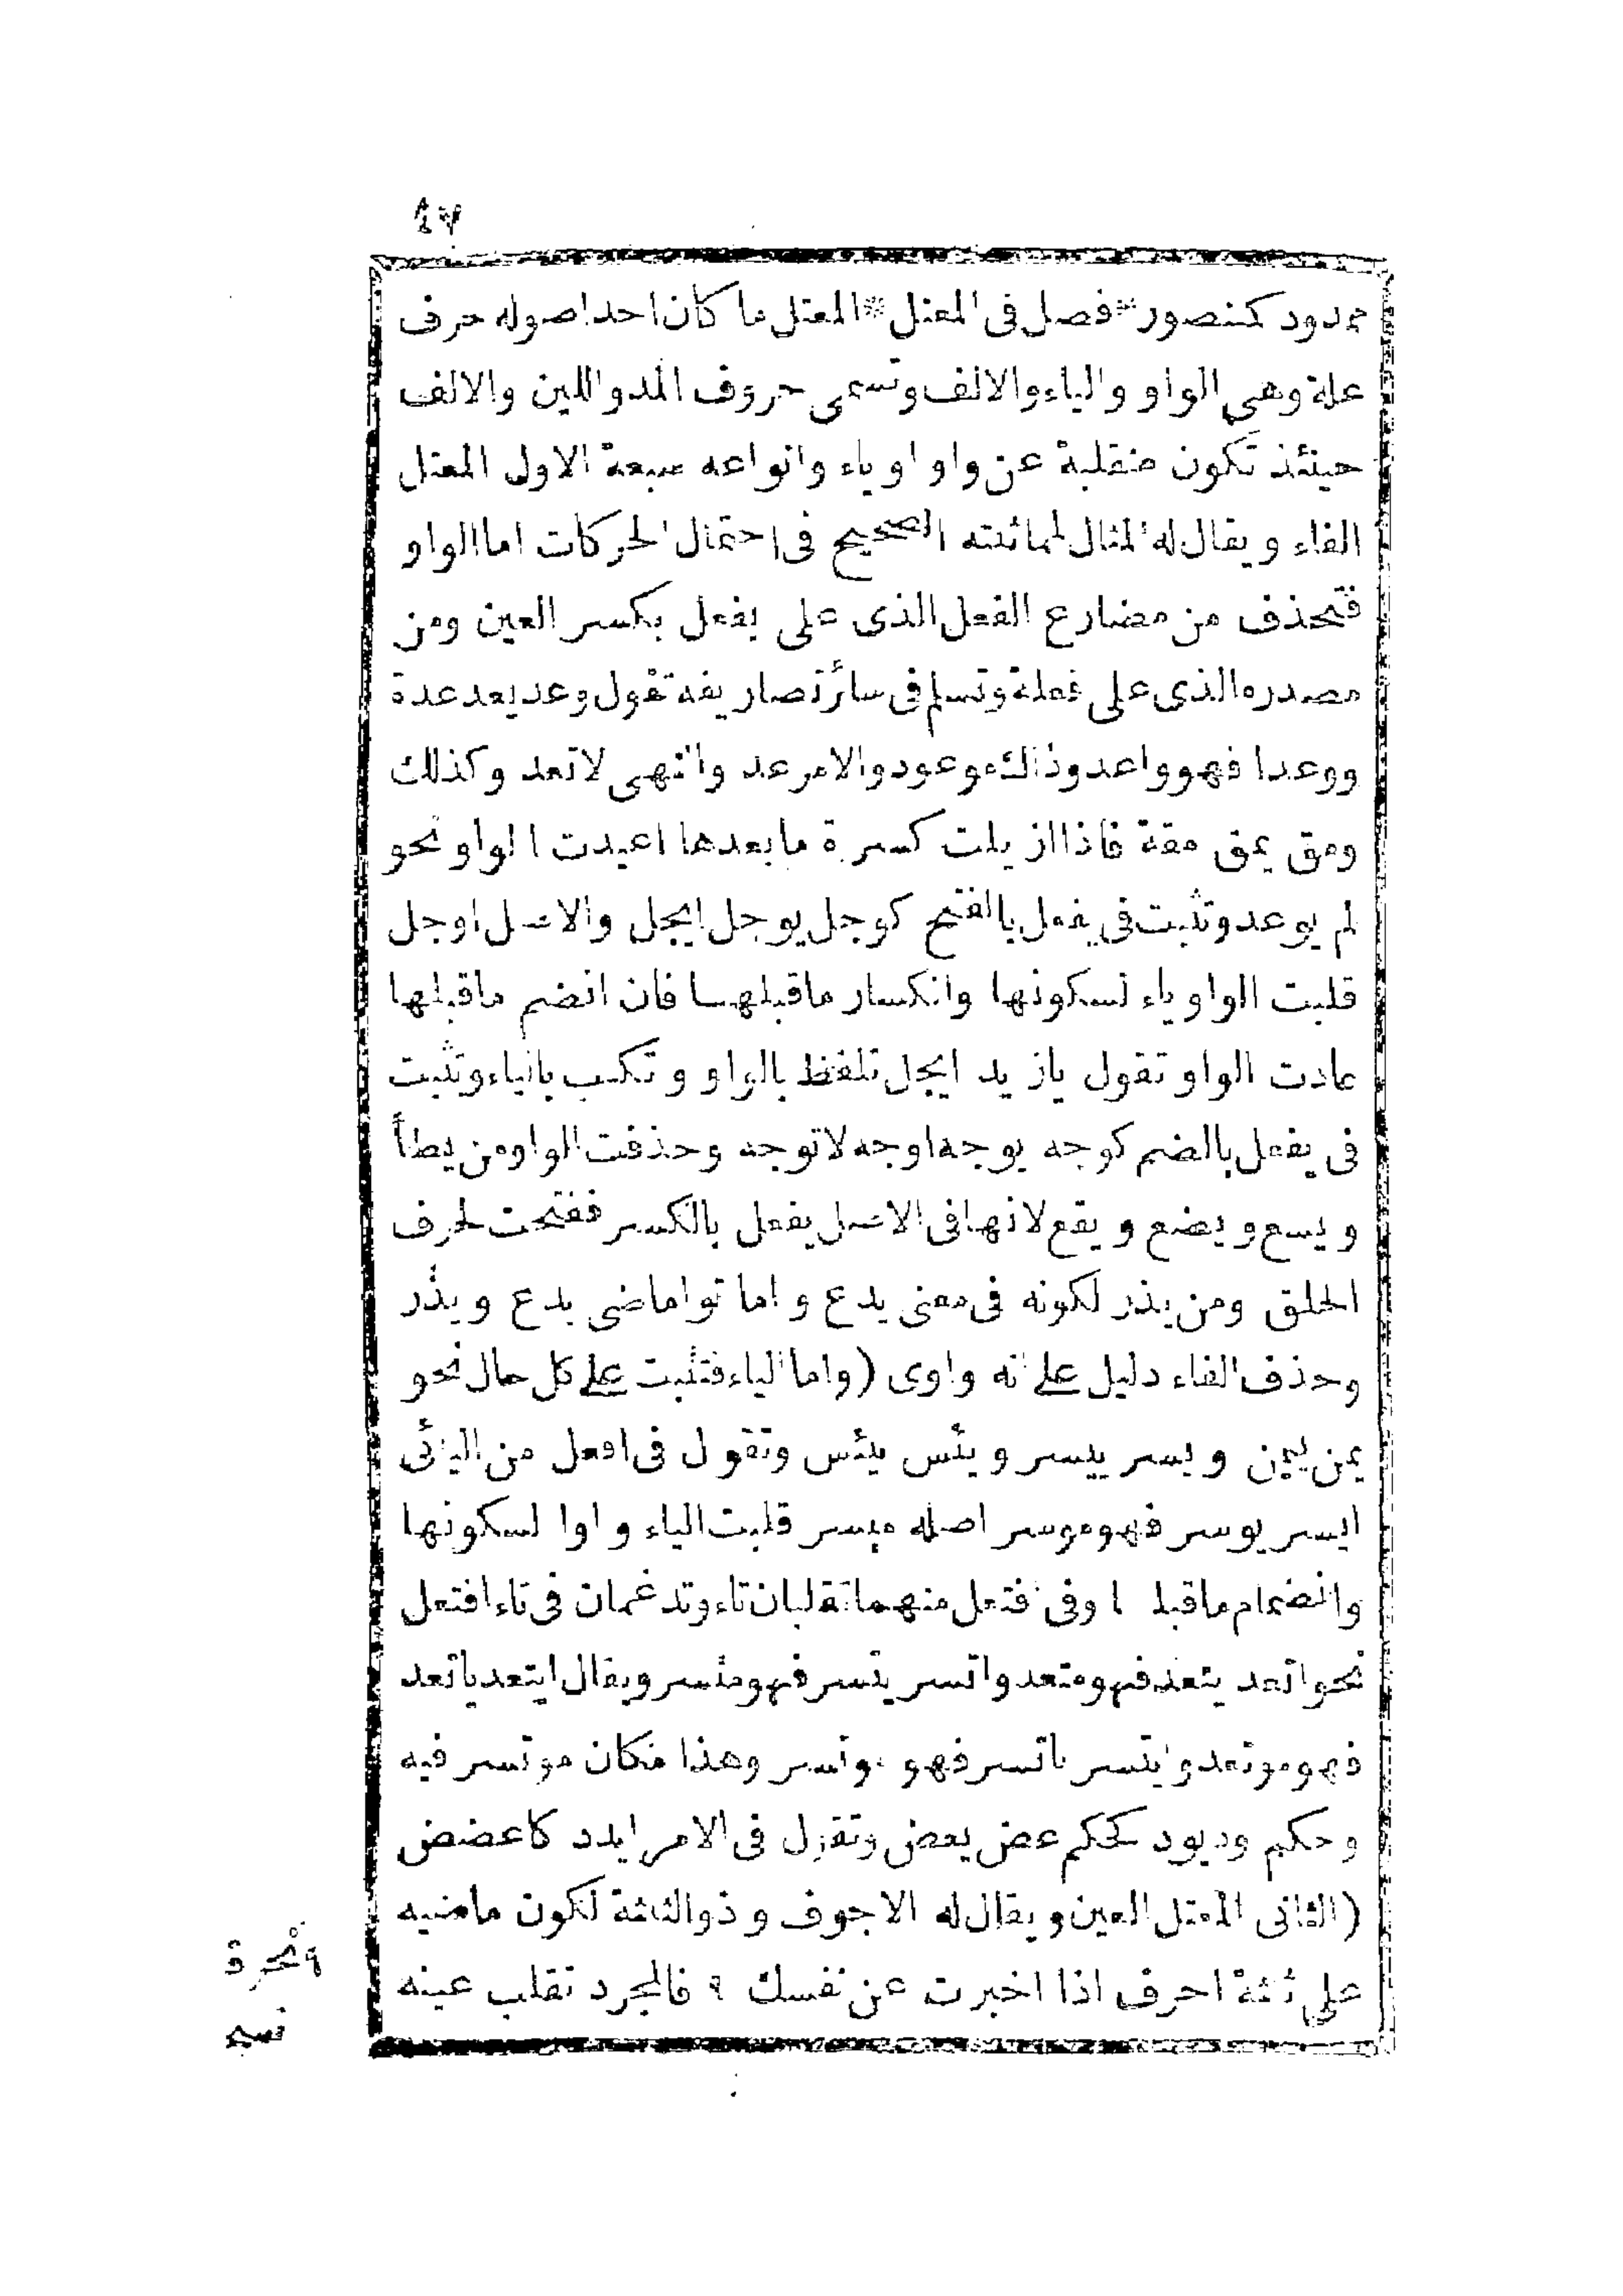 ٤٧
ممدود كمنصور * فصل فى المعتل * المعتل ما كان احد اصوله حرف
علة وهى الواو والياء والالف وتسمى حروف المد واللين والالف
حينئذ تكون منقلبة عن واو او ياء وانواعه سبعة الاول المعتل
الفاء ويقال له المثال لمماثلته الصحيح فى احتمال الحركات اما الواو
فتحذف من مضارع الفعل الذى على يفعل بكسر العين ومن
مصدره الذى على فعلة وتسلم فى سائر تصاريفه تقول وعد يعد عدة
ووعدا فهو واعد وذاك موعود والامر عد والنهى لا تعد وكذلك
ومق يمق مقة فاذا ازيلت كسرة ما بعدها اعيدت الواو نحو
لم يوعد وتثبت فى يفعل بالفتح كوجل يوجل ايجل والاصل اوجل
قلبت الواو ياء لسكونها وانكسار ماقبلها فان انضم ماقبلها
عادت الواو تقول يازيد ايجل تلفظ بالواو وتكتب بالياء وتثبت
فى يفعل بالضم كوجه يوجه اوجه لاتوجه وحذفت الواو من يطأ
ويسع ويضع ويقع لانها فى الاصل يفعل بالكسر ففتحت لحرف
الحلق ومن يذر لكونه فى معنى يدع واماتوا ماضى يدع ويذر
وحذف الفاء دليل على انه واوى (واما الياء فتثبت على كل حال نحو
يمن ييمن ويسر ييسر ويئس ييئس وتقول فى افعل من اليائى
ايسر يوسر فهو موسر اصله ميسر قلبت الياء واوا لسكونها
وانضمام ماقبلها وفى افتعل منهما تقلبان تاء وتدغمان فى تاء افتعل
نحو اتعد يتعد فهو متعد واتسر يتسر فهو متسر ويقال ايتعد ياتعد
فهو موتعد وايتسر ياتسر فهو موتسر وهذا مكان موتسر فيه
وحكم ود يود كحكم عض يعض وتقول فى الامر ايدد كاعضض
(الثانى المعتل العين ويقال له الاجوف وذو الثلثة لكون ماضيه
على ثلثة احرف اذا اخبرت عن نفسك ٩ فالمجرد تقلب عينه
٩ نحو